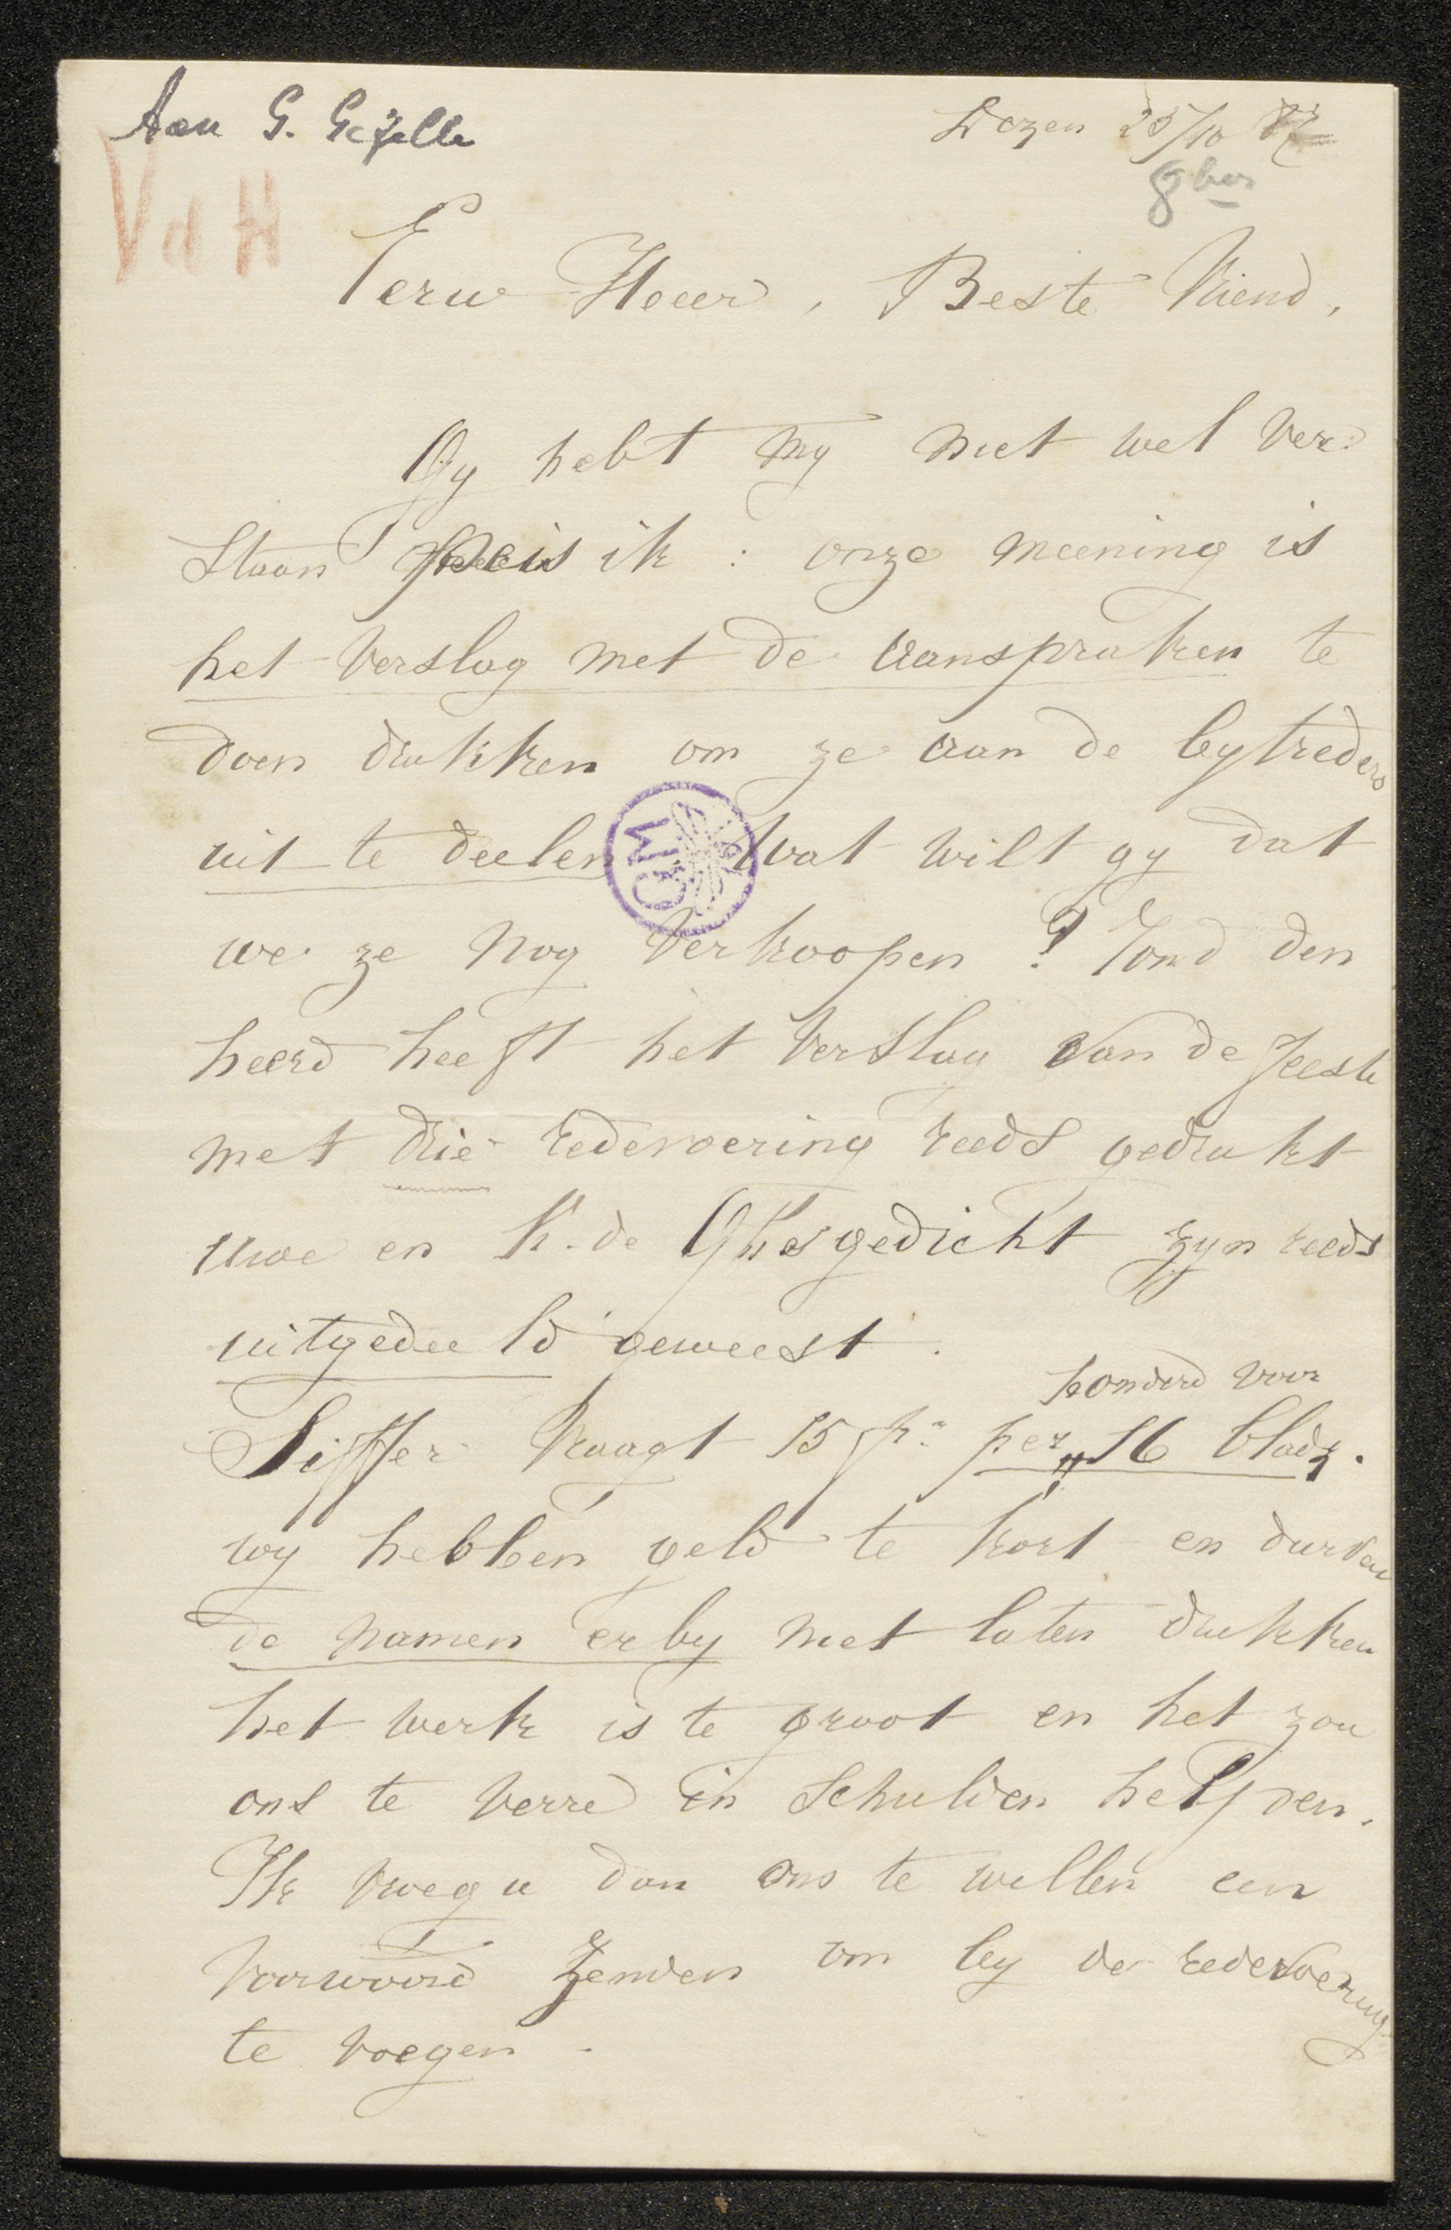 Aan G. Gezelle
Lozen 25/10 87
8ber
V d H
Eerw Heer, Beste Vriend,
Gy hebt my niet wel ver-
staan peis ik : onze meening is
het verslag met de aanspraken te
doen drukken om ze aan de bytreders
uit te deelen Wat wilt gy dat
we ze nog verkoopen? Rond den
heerd heeft het verslag van de feeste
met drie redevoering reeds gedrukt
uwe en K. de Gh's gedicht zyn reeds
uitgedeeld geweest.
honderd voor
Siffer vraagt 15 fr. per 16 bladz.
wy hebben geld te kort en durven
de namen erby niet laten drukken
het werk is te groot en het zou
ons te verre in schulden helpen.
Ik vroeg u dan ons te willen een
voorwoord zenden om by de redevoering
te voegen.
GM